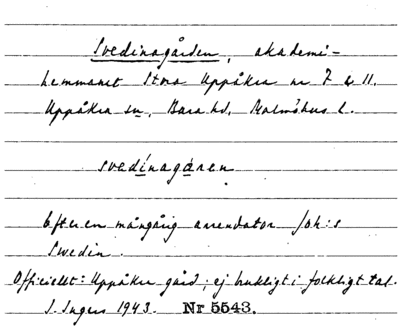 Svedinagården, akademi-
hemmanet Stora Uppåkra nr 7 & 11.
Uppåkra sn, Bara hd, Malmöhus l.
svedínagáren
Efter en mångårig arrendator Joh:s
Svedin.
Officiellt: Uppåkra gård; ej brukligt i folkligt tal.
I. Ingers 1943. Nr 5543.